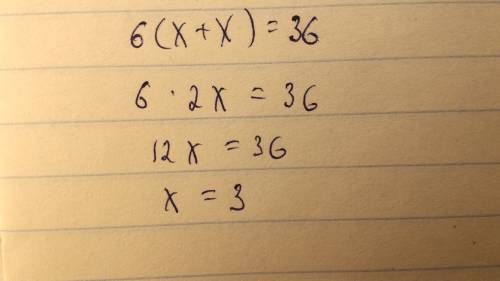 6(x+x)=36
6 · 2x = 36
12x = 36
x = 3